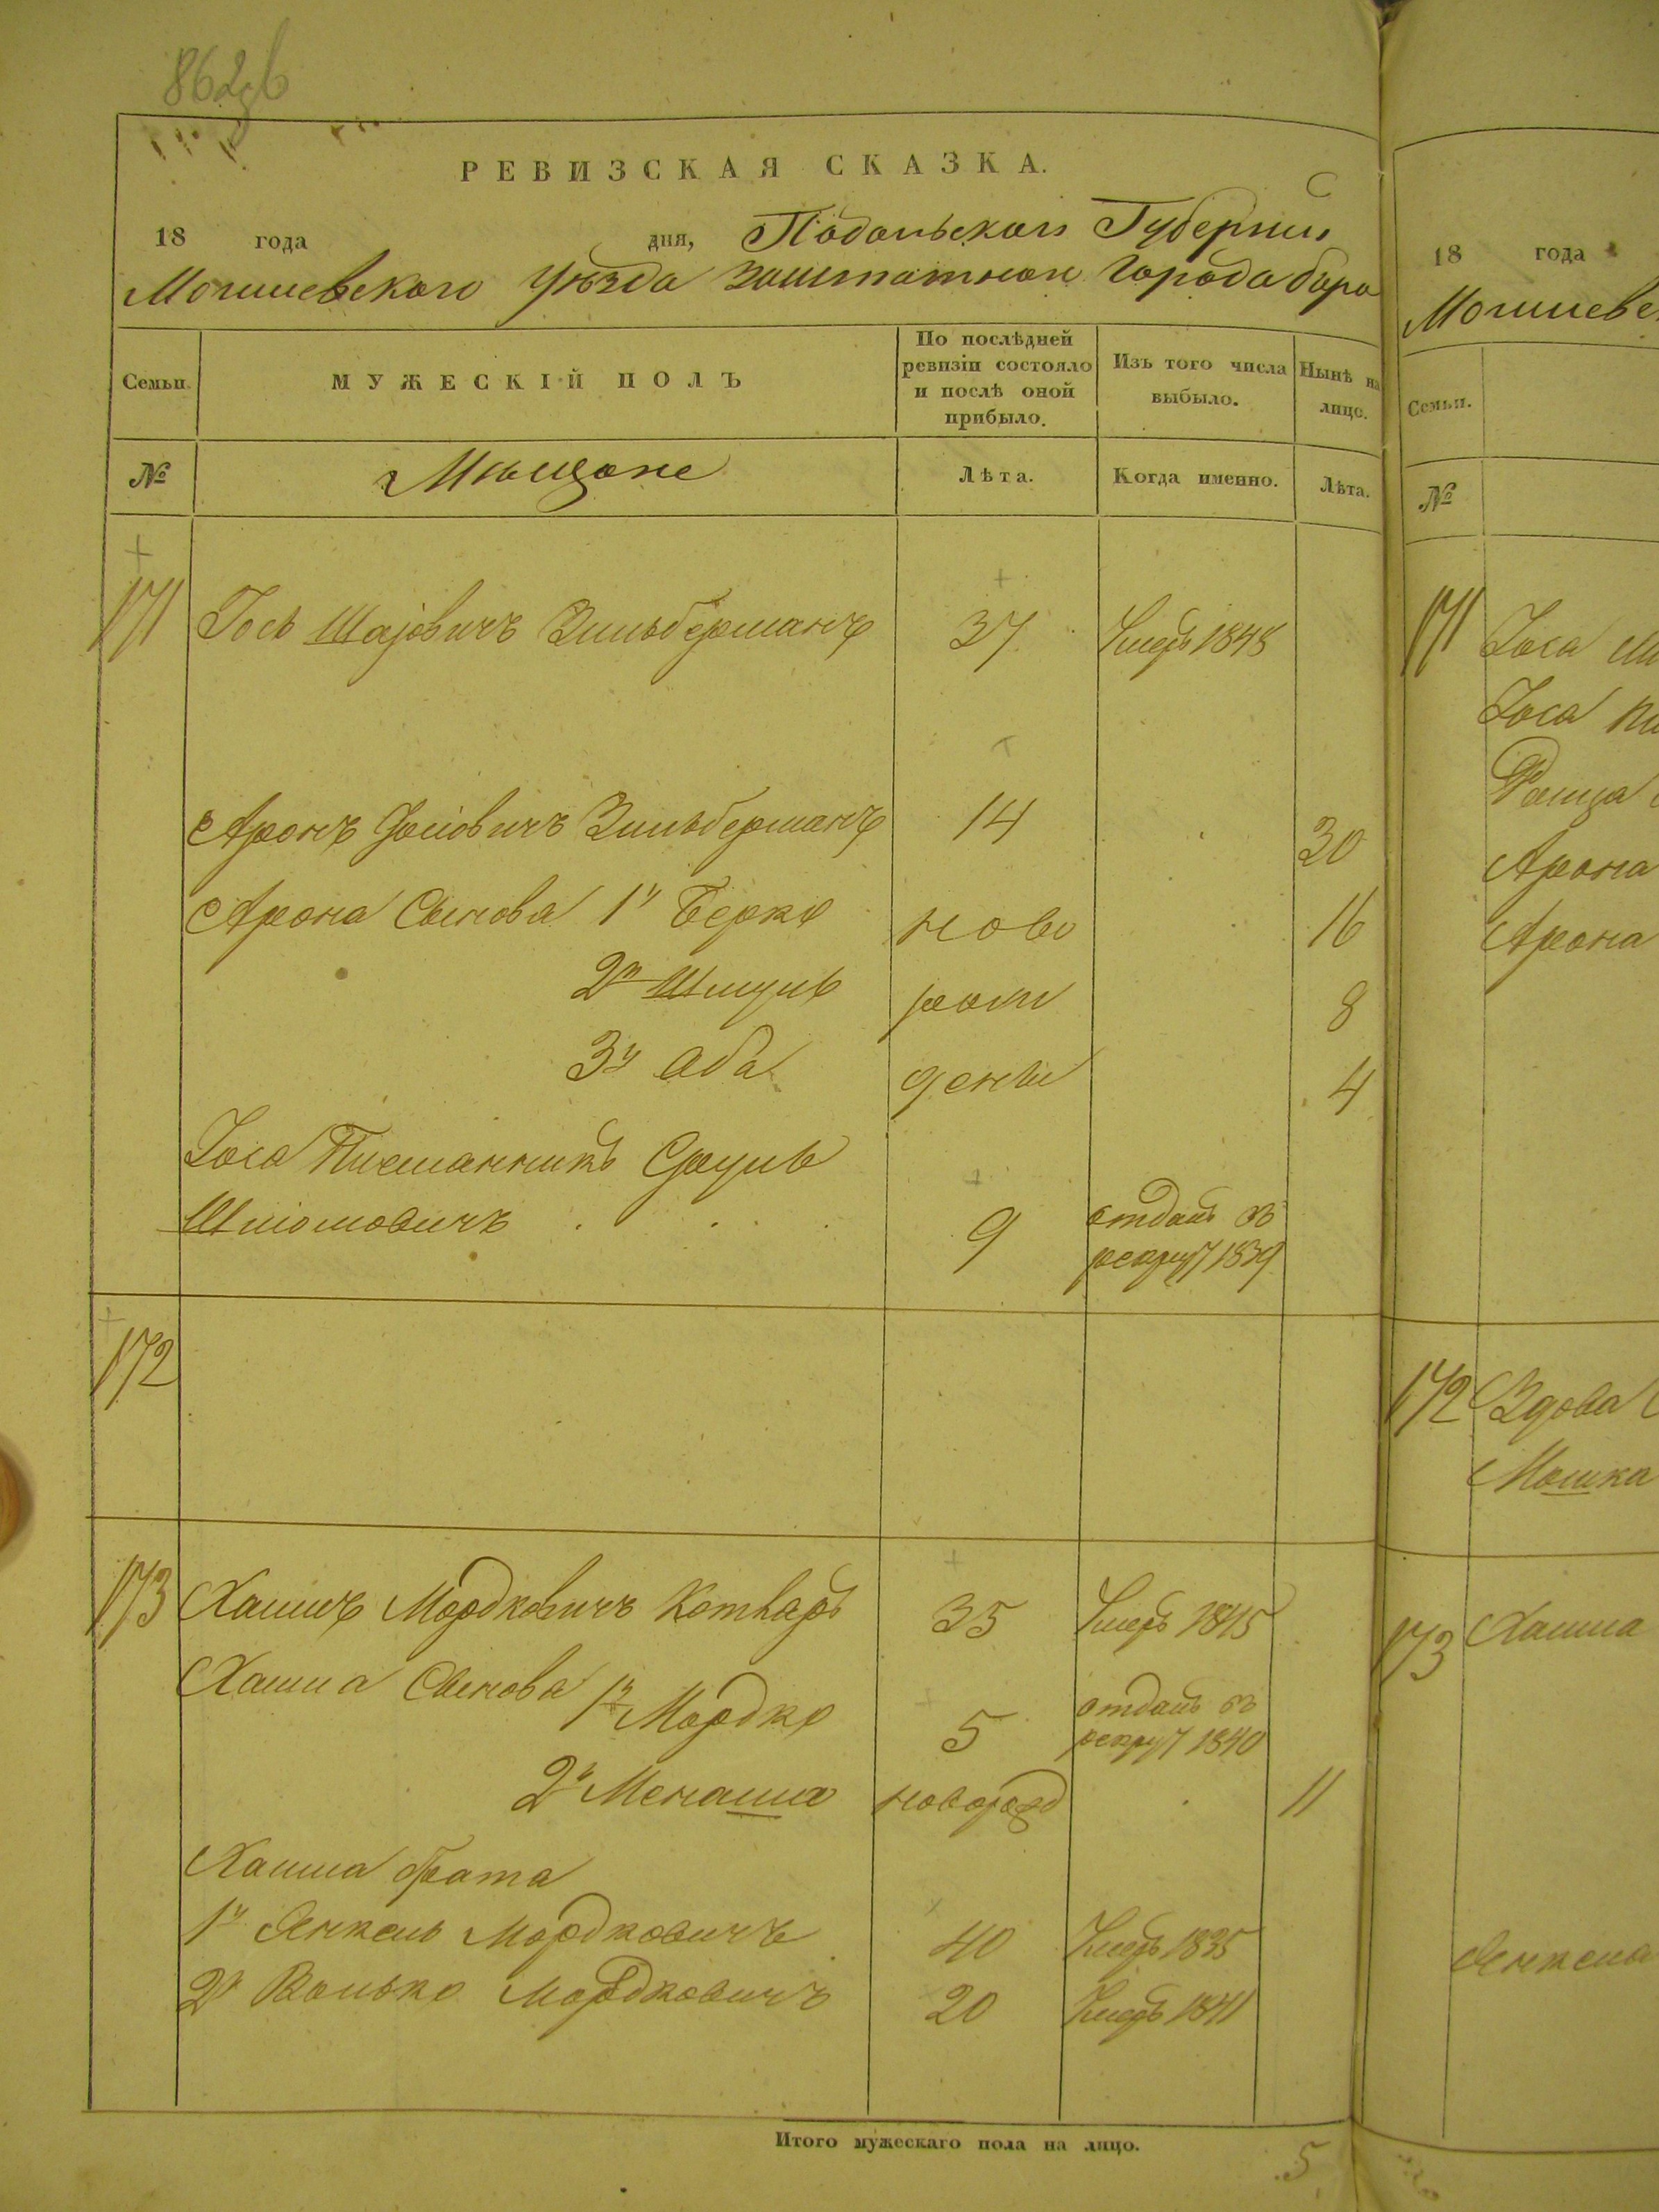 862об
РЕВИЗСКАЯ СКАЗКА.
18 года дня, Подольской Губерніи
Могилевского Уѣзда Заштатного Города бара
Семьи.
МУЖЕСКІЙ ПОЛЪ
По послѣдней ревизіи состояло и послѣ оной прибыло.
Изъ того числа выбыло.
Нынѣ на лицо.
№
Мѣщане
Лѣта.
Когда именно.
Лѣта.
171 Іось Шаіовичъ Зильберманъ 37 Умеръ 1848
Аронъ Іосіовичъ Зильберманъ 14 30
Арона Сынова 1й Берко ново 16
2й Шмуль рож 8
3й Аба дены 4
Іося Племянникъ Сруль
Шліомовичъ 9 отданъ въ
рекрут 1839
172
173 Хаимъ Мордковичъ Котляръ 35 Умеръ 1845
Хаима Сынова 1й Мордко 5 отданъ въ
рекрут 1840
2й Менаша новорожд 11
Хаима брата
1й Янкель Мордковичъ 40 Умеръ 1835
2й Волько Мордковичъ 20 Умеръ 1841
Итого мужескаго пола на лицо. 5
18 года
Семьи.
№
171 Іося
Іося
Арона
Арона
172 Вдова
Мошка
173 Хаима
Янкеля